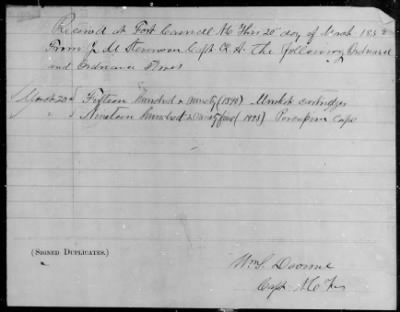 Received at Fort Carroll Me this 20 day of March 186
From J. M. Stevenson Capt R. A. the following Ordnance
and Ordnance Stores
March 20 Fifteen hundred & ninety (1590) Musket cartridges
" " Nineteen hundred & (1995) Percussion Caps
(Signed Duplicates.)
Wm S.
Capt.